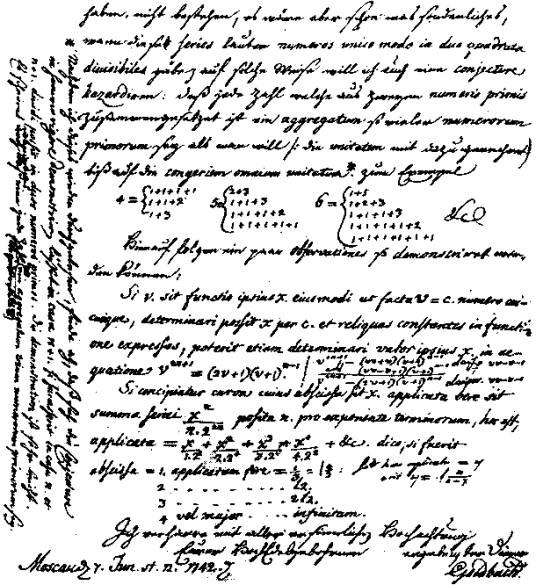 haben, nicht bestehen, es wäre aber schon was sonderliches,
wenn diese series lauter numeros unico modo in duo quadrata
divisibiles gäbe auf solche Weise will ich auch eine conjecture
hazardiren: daß jede Zahl welche aus zweyen numeris primis
zusammengesetzet ist ein aggregatum so vieler numerorum
primorum sey als man will /: die unitatem mit dazu gerechnet
biß auf die congeriem omnium unitatum* zum Exempel
4 = { 1+1+1+1 / 1+1+2 / 1+3
5 = { 2+3 / 1+1+3 / 1+1+1+2 / 1+1+1+1+1
6 = { 1+5 / 1+2+3 / 1+1+1+3 / 1+1+1+1+2 / 1+1+1+1+1+1 &c
Hierauf folgen ein paar observationes so demonstriret wer-
den können:
Si v. sit functio ipsius x. eiusmodi ut facta v = c. numero cui-
cunque, determinari possit x per c. et reliquas constantes in functi-
one expressas, poterit etiam determinari valor ipsius x. in ae-
quatione v²ⁿ⁺¹ = (2v+1)(v+1)ⁿ⁻¹
Si concipiatur curva cuius abscissa sit x. applicata vero sit
summa seriei xⁿ/n.2²ⁿ posita n. pro exponente terminorum, hoc est,
applicata = x/1.2² + x²/2.2⁴ + x³/3.2⁶ + x⁴/4.2⁸ + &c. dico, si fuerit
abscissa = 1. applicatam fore = l 4/3
2 . . . . . . . . . l2.
3 . . . . . . . . . 2l2.
4 vel major . . . . infinitam.
Ich verharre mit aller ersinnlichen Hochachtung
Eurer Hochedelgebohrnen ergebenster Diener
Moscau d. 7. Jun. st. n. 1742. Goldbach.
* Nachdem ich dieses wieder durchgelesen, finde ich daß sich die conjecture
in summo rigore demonstriren lässet in casu n+1. si successerit in casu n. et
n+1. dividi possit in duos numeros primos. Die demonstration ist sehr leicht.
Es scheinet wenigstens daß eine jede Zahl aggregatum trium numerorum primorum sey.